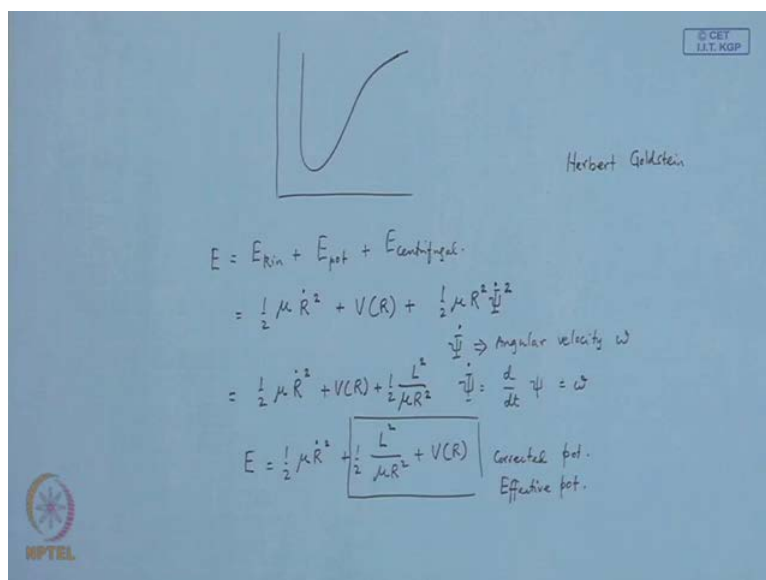 © CET
I.I.T. KGP
Herbert Goldstein
E = E_kin + E_pot + E_centrifugal.
= 1/2 μ Ṙ² + V(R) + 1/2 μ R² ψ̇²
ψ̇ ⇒ Angular velocity ω
= 1/2 μ Ṙ² + V(R) + 1/2 L²/μR² ψ̇ = d/dt ψ = ω
E = 1/2 μ Ṙ² + 1/2 L²/μR² + V(R) Corrected pot.
Effective pot.
NPTEL